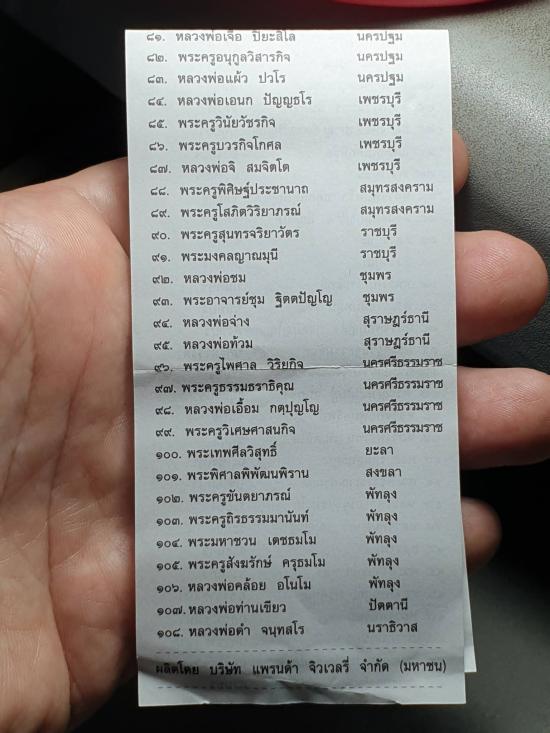 ๘๑. หลวงพ่อเจือ ปิยะสีโล นครปฐม
๘๒. พระครูอนุกูลวิสารกิจ นครปฐม
๘๓. หลวงพ่อแผ้ว ปวโร นครปฐม
๘๔. หลวงพ่อเอนก ปัญญธโร เพชรบุรี
๘๕. พระครูวินัยวัชรกิจ เพชรบุรี
๘๖. พระครูบวรกิจโกศล เพชรบุรี
๘๗. หลวงพ่อจิ สมจิตโต เพชรบุรี
๘๘. พระครูพิศิษฐ์ประชานาถ สมุทรสงคราม
๘๙. พระครูโสภิตวิริยาภรณ์ สมุทรสงคราม
๙๐. พระครูสุนทรจริยาวัตร ราชบุรี
๙๑. พระมงคลญาณมุนี ราชบุรี
๙๒. หลวงพ่อชม ชุมพร
๙๓. พระอาจารย์ชุม ฐิตตปัญโญ ชุมพร
๙๔. หลวงพ่อจ่าง สุราษฎร์ธานี
๙๕. หลวงพ่อท้วม สุราษฎร์ธานี
๙๖. พระครูไพศาล วิริยกิจ นครศรีธรรมราช
๙๗. พระครูธรรมธราธิคุณ นครศรีธรรมราช
๙๘. หลวงพ่อเอื้อม กตฺปุญโญ นครศรีธรรมราช
๙๙. พระครูวิเศษศาสนกิจ นครศรีธรรมราช
๑๐๐. พระเทพศีลวิสุทธิ์ ยะลา
๑๐๑. พระพิศาลพิพัฒนพิธาน สงขลา
๑๐๒. พระครูขันตยาภรณ์ พัทลุง
๑๐๓. พระครูถิรธรรมมานันท์ พัทลุง
๑๐๔. พระมหาชวน เตชธมโม พัทลุง
๑๐๕. พระครูสังฆรักษ์ ครุธมโม พัทลุง
๑๐๖. หลวงพ่อคล้อย อโนโม พัทลุง
๑๐๗. หลวงพ่อท่านเขียว ปัตตานี
๑๐๘. หลวงพ่อดำ จนฺทสโร นราธิวาส
ผลิตโดย บริษัท แพรนด้า จิวเวลรี่ จำกัด (มหาชน)